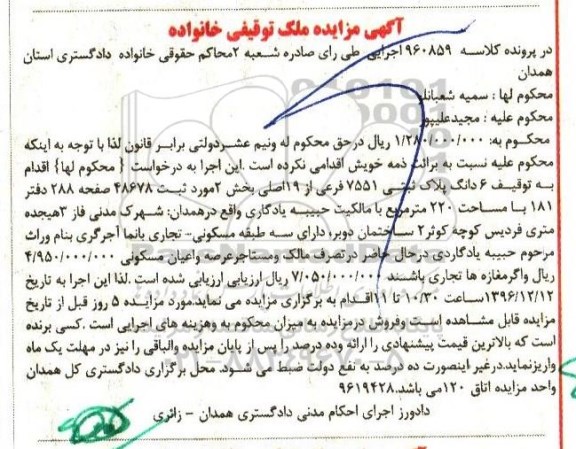 آگهی مزایده ملک توقیفی خانواده
در پرونده کلاسه ۹۶۰۸۵۹ اجرایی طی رای صادره شعبه ۲محاکم حقوقی خانواده دادگستری استان
همدان
محکوم لها : سمیه شعبانلو
محکوم علیه : مجیدعلیپور
محکوم به: ۱/۲۸۰/۰۰۰/۰۰۰ ریال درحق محکوم له ونیم عشردولتی برابر قانون لذا با توجه به اینکه
محکوم علیه نسبت به برائت ذمه خویش اقدامی نکرده است .این اجرا به درخواست { محکوم لها} اقدام
به توقیف ۶ دانگ پلاک ثبتی ۷۵۵۱ فرعی از ۱۹اصلی بخش ۲مورد ثبت ۴۸۶۷۸ صفحه ۲۸۸ دفتر
۱۸۱ با مساحت ۲۲۰ مترمربع با مالکیت حبیبه یادگاری واقع درهمدان: شهرک مدنی فاز ۳هیجده
متری فردیس کوچه کوثر۲ ساختمان دوبر، دارای سه طبقه مسکونی- تجاری بانما آجرگری بنام وراث
مرحوم حبیبه یادگاردی درحال حاضر درتصرف مالک ومستاجرعرصه واعیان مسکونی ۴/۹۵۰/۰۰۰/۰۰۰
ریال واگرمغازه ها تجاری باشند ۷/۰۵۰/۰۰۰/۰۰۰ ریال ارزیابی ارزیابی شده است .لذا این اجرا به تاریخ
۱۳۹۶/۱۲/۱۲ساعت ۱۰/۳۰ تا ۱۱اقدام به برگزاری مزایده می نماید.مورد مزایده ۵ روز قبل از تاریخ
مزایده قابل مشاهده است .وفروش درمزایده به میزان محکوم به وهزینه های اجرایی است .کسی برنده
است که بالاترین قیمت پیشنهادی را ارائه وده درصد را پس از پایان مزایده والباقی را نیز در مهلت یک ماه
واریزنماید.درغیر اینصورت ده درصد به نفع دولت ضبط می شود. محل برگزاری دادگستری کل همدان
واحد مزایده اتاق ۱۲۰می باشد.۹۶۱۹۴۲۸
دادورز اجرای احکام مدنی دادگستری همدان - زائری